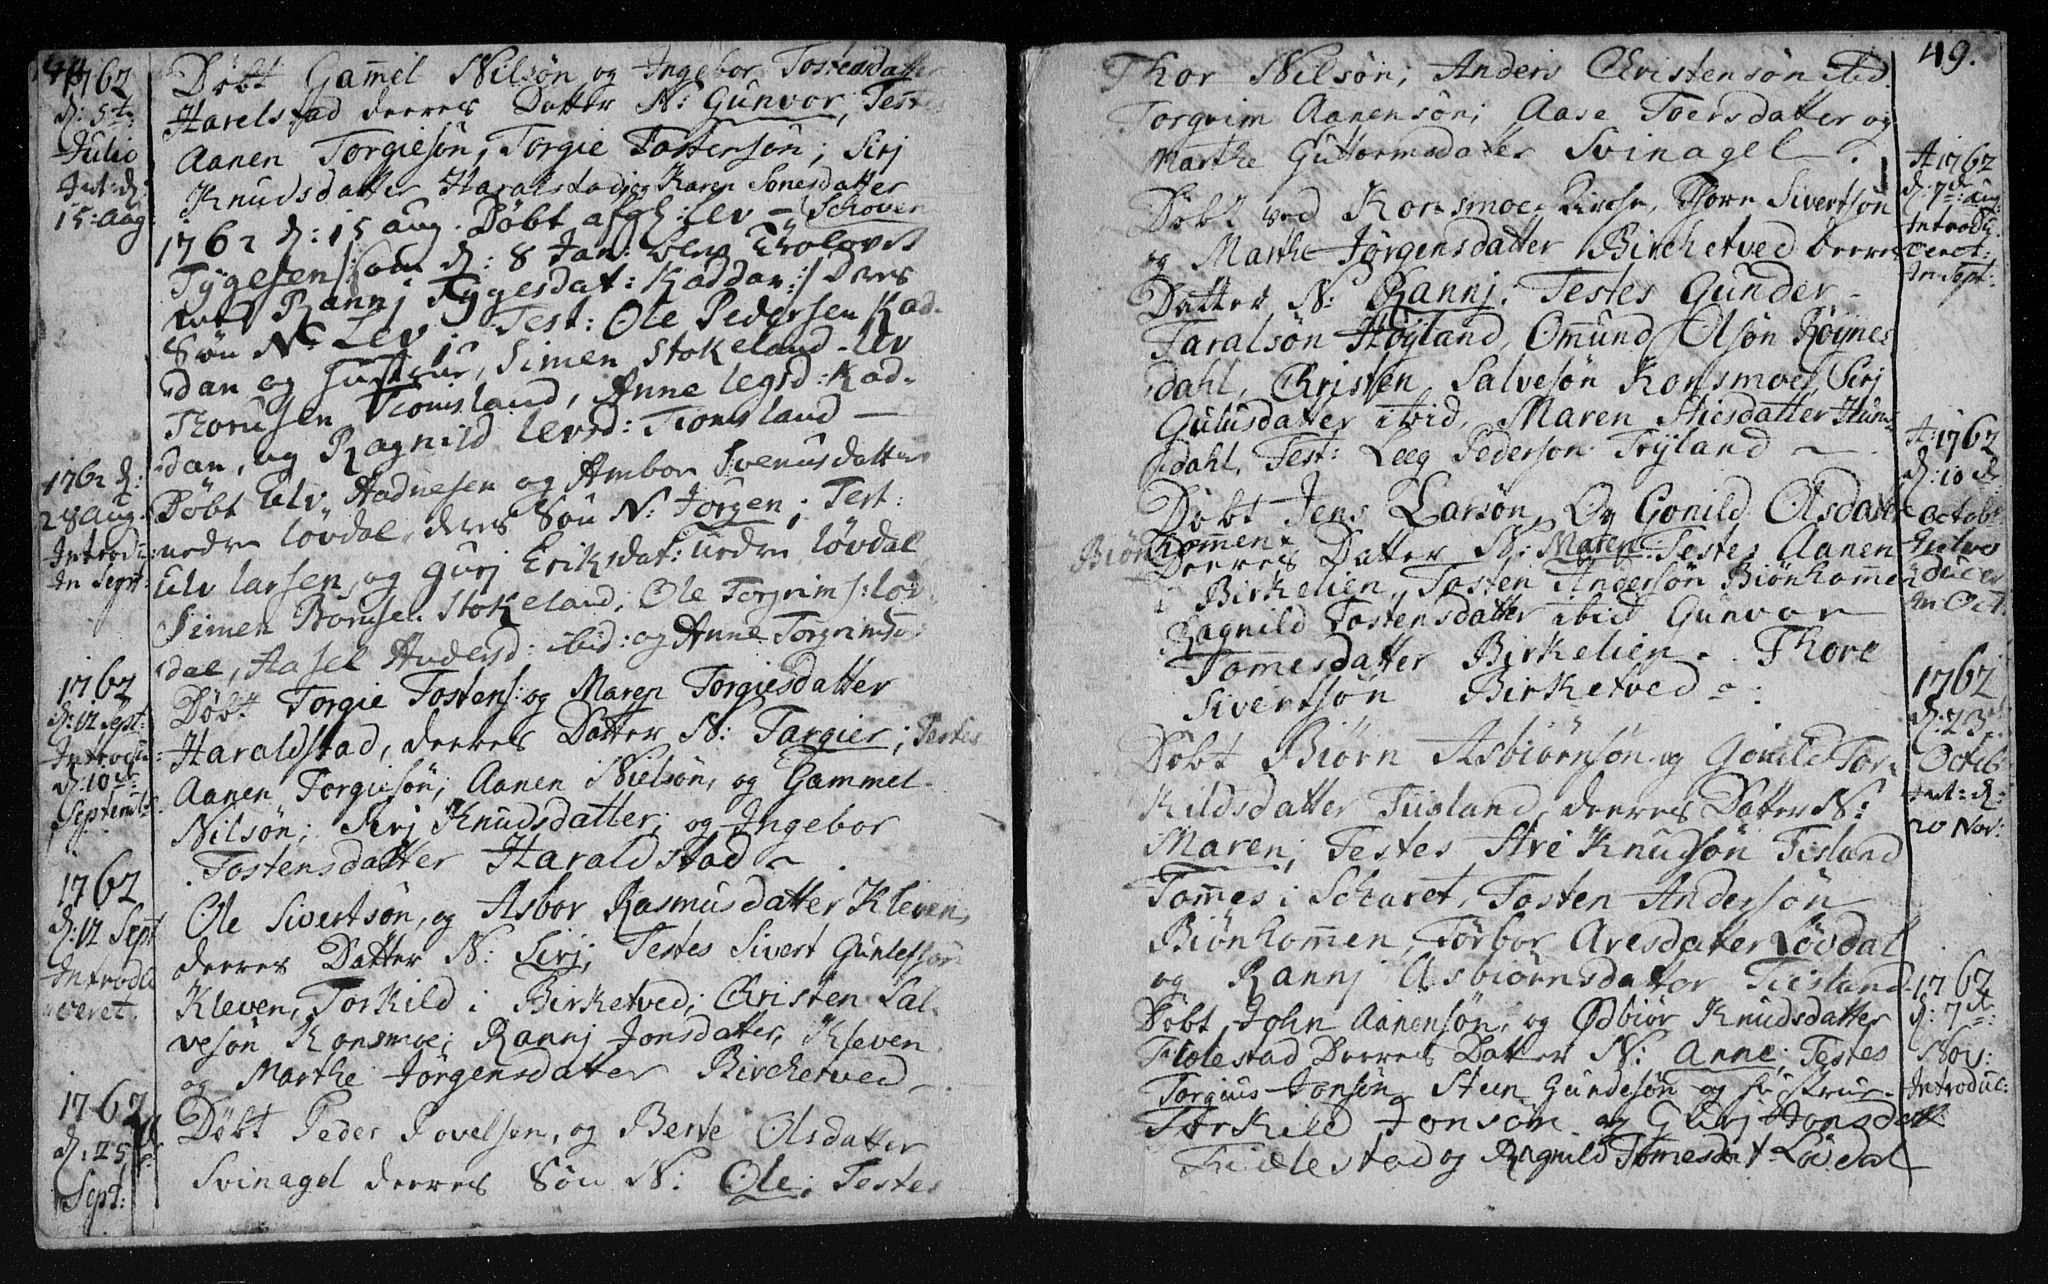 1762
d: 5te
Julio
Int: d:
15: aug
Døbt Gammel Nilsøn og Ingebor Tostensdatter
Harelstad deeres Datter N: Gunvor, Testes
Aanen Torgiesøn, Torgie Tostensøn; Sirj
Knudsdatter Haralstad og Karen Jonesdatter
Schoven
1762 d: 15 aug. Døbt afgl: Lev
Tygesen /: som d: 8 Jan: blev Trolovet
med Rannj Tygesdat: Kaddan :/ Deres
Søn N: Lev. Test: Ole Pedersen Kad-
dan og hustrue, Simen Stokeland Lev
Thorusen Tiomsland, Anne Legsd: Kad-
dan, og Ragnild Levsd: Tiomsland
1762 d:
28 aug.
Introd:
In Sept:
Døbt Ulv Aadnesen og Ambor Svenusdatter
nedre Løvdal, deres Søn N: Jørgen; Test:
Ulv Larsen, og Gurj Eriksdat: nedre Løvdal
Simen Stokeland, Ole Torgrims: Løv-
dal, Aasel Andersd: ibid: og Anne Torgrims
1762
d: 12 Sept:
Introdu:
d: 10de
Septemb:
Døbt Torgie Tostens: og Maren Torgiesdatter
Haraldstad, deeres Datter N: Targier; Testes
Aanen Torgiesøn; Aanen Nielsøn, og Gammel
Nilsøn; Sirj Knudsdatter; og Ingebor
Tostensdatter Haraldstad
1762
d: 12 Sept
Introdu
ceret.
Ole Sivertsøn, og Asbor Rasmusdatter Kleven,
deeres Datter N: Sirj; Testes Sivert Gunlefsøn
Kleven, Torkild i Birketved; Christen Sal-
vesøn Konsmoe; Rannj Jonsdatter, Kleven
og Marthe Jørgensdatter Birchetved
1762
d: 25
Sept:
Døbt Peder Povelsen, og Berte Olsdatter
Svinagel deeres Søn N: Ole; Testes
49.
Thor Nilsøn; Anders Christensøn ibid.
Torgrim Aanensøn; Aase Toersdatter og
Marthe Guttormsdatter Svinagel
A: 1762
d: 7de aug
Introdu
ceret:
In Sept:
Døbt ved Konsmoe Kirche, Thore Sivertsøn
og Marthe Jørgensdatter Birchetved deeres
Datter N: Rannj. Testes Gunder
Taralsøn Høgland, Omund Olsøn Røines
dahl, Christen Salvesøn Konsmoe, Sirj
Gulusdatter ibid, Maren Stiesdatter Hun-
dahl, Test: Leeg Pedersøn Tryland
A: 1762
d: 10de
Octob
In Oct:
Døbt Jens Larsøn Og Gonild Olsdatter
Biønkommen
Deeres Datter N: Maren. Testes Aanen
i Birkelien, Tosten Andersøn Biønkommen
Ragnild Tostensdatter ibid Gunvor
Tommesdatter Birkelien. Thore
Sivertsøn Birketved
1762
d: 23
Octob
Int: d:
20 Nov:
Døbt Biørn Asbiørnsøn og Gonild Tor-
kildsdatter Tiigland, deeres Datter N:
Maren; Testes Are Knudsøn Tisland
Tommes i Scharet, Tosten Andersøn
Biønkommen, Torbor Aresdatter Løvdal
og Rannj Asbiørnsdatter Tiisland
1762
d: 7de
Nov:
Introduc:
Døbt John Aanensøn, og Ødbiør Knudsdatter
Fidelestad Deeres Datter N: Anne; Testes
Torgius Jonsøn, Steen Gundesøn og hustrue
Torkild Jonsøn og Gurj Jonsdatt
Fidelestad og Ragnild Tomesdat Løvdal